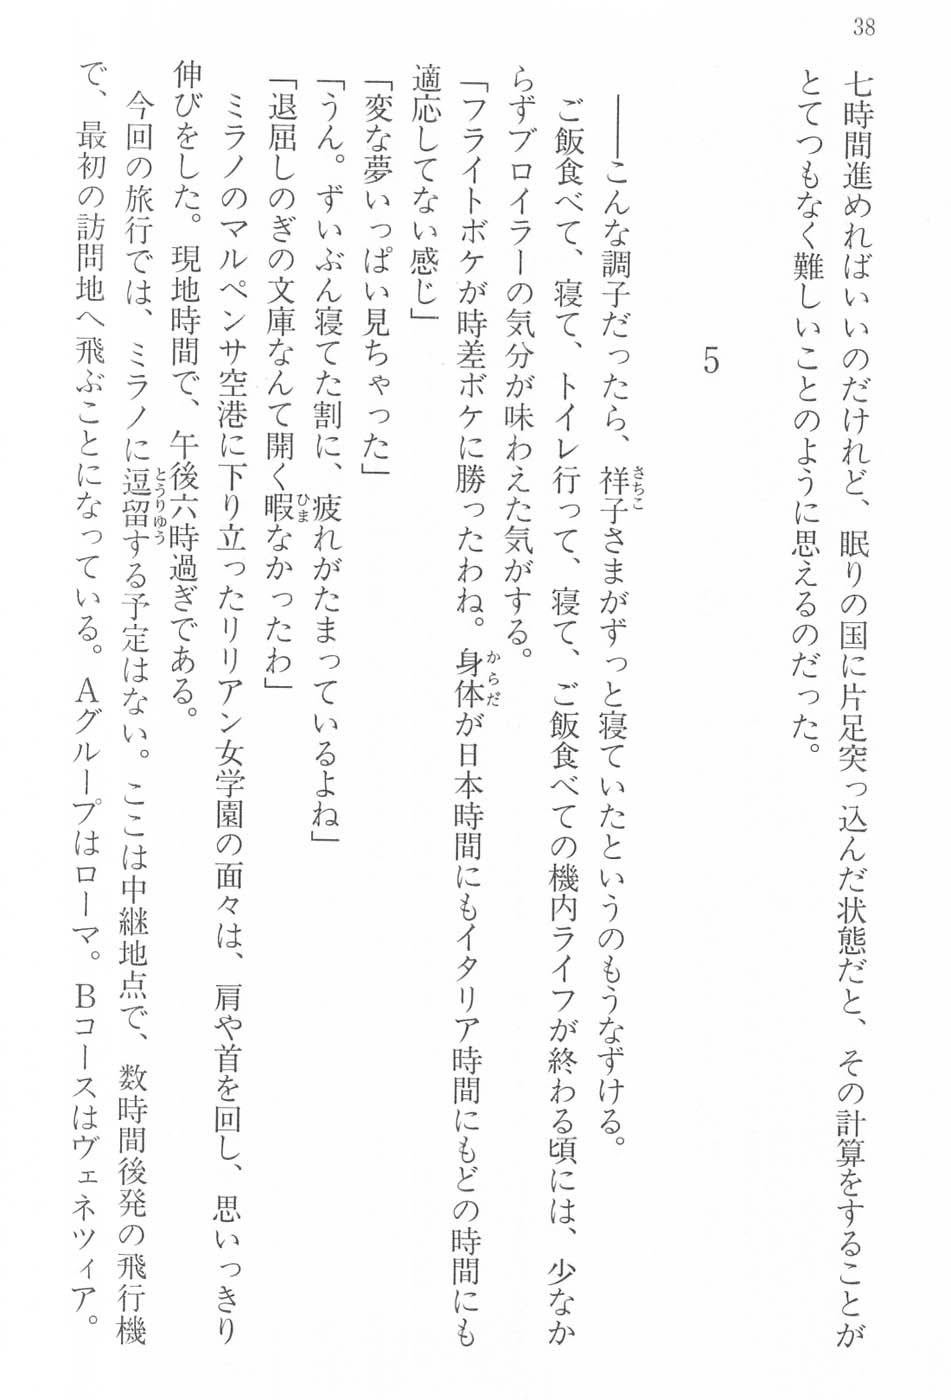 38
七時間進めればいいのだけれど、眠りの国に片足突っ込んだ状態だと、その計算をすることが
とてつもなく難しいことのように思えるのだった。
5
――こんな調子だったら、祥子さまがずっと寝ていたというのもうなずける。
さちこ
ご飯食べて、寝て、トイレ行って、寝て、ご飯食べての機内ライフが終わる頃には、少なか
らずブロイラーの気分が味わえた気がする。
「フライトボケが時差ボケに勝ったわね。身体が日本時間にもイタリア時間にもどの時間にも
からだ
適応してない感じ」
「変な夢いっぱい見ちゃった」
「うん。ずいぶん寝てた割に、疲れがたまっているよね」
「退屈しのぎの文庫なんて開く暇なかったわ」
ひま
ミラノのマルペンサ空港に下り立ったリリアン女学園の面々は、肩や首を回し、思いっきり
伸びをした。現地時間で、午後六時過ぎである。
今回の旅行では、ミラノに逗留する予定はない。ここは中継地点で、数時間後発の飛行機
とうりゆう
で、最初の訪問地へ飛ぶことになっている。Aグループはローマ。Bコースはヴェネツィア。